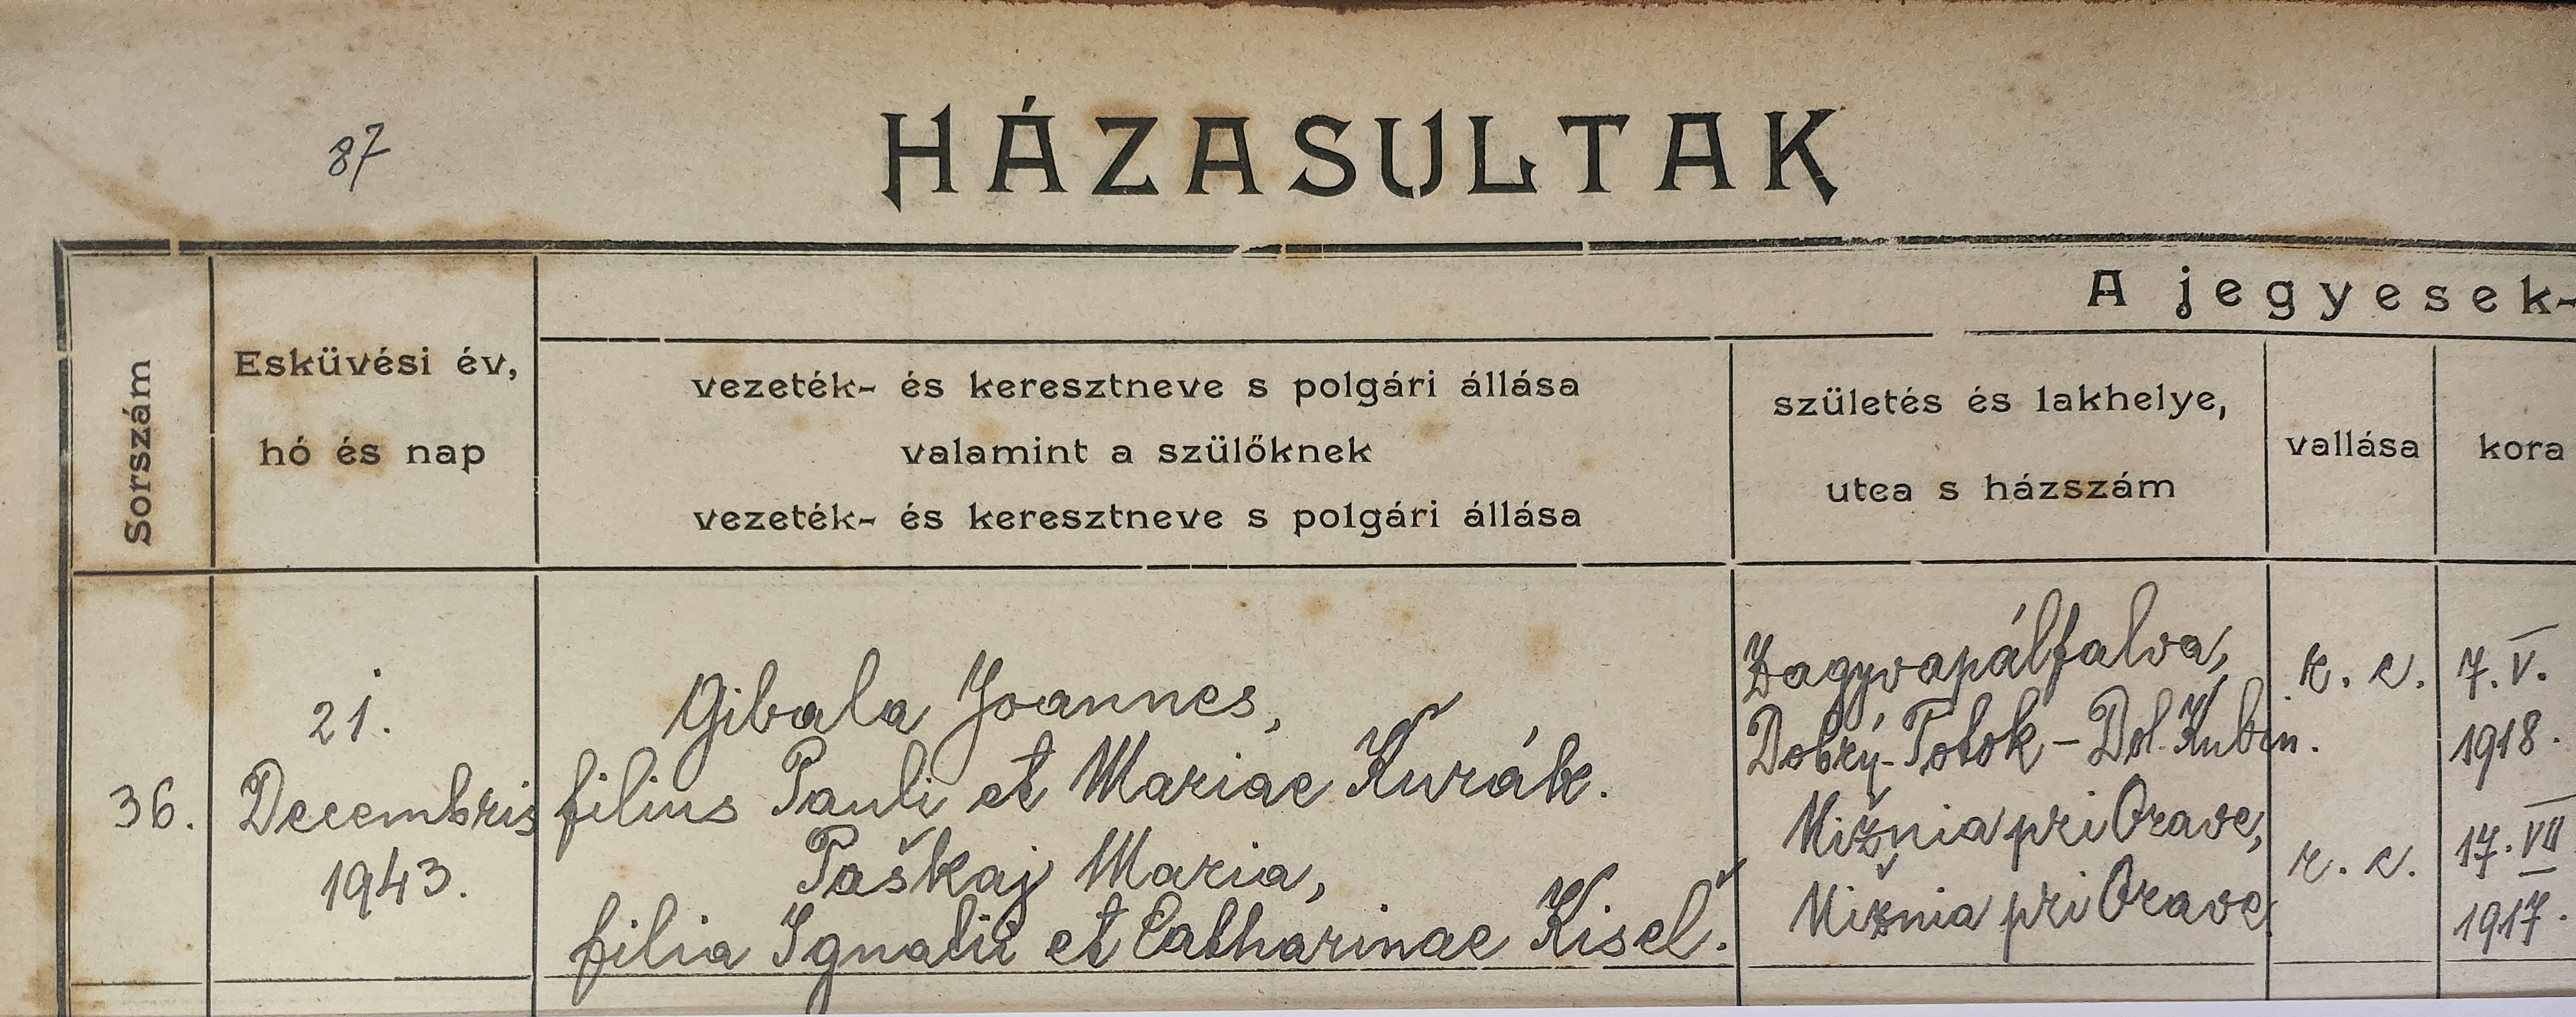 87
HÁZASULTAK
A jegyesek-
Sorszám
Esküvési év,
hó és nap
vezeték- és keresztneve s polgári állása
valamint a szülőknek
vezeték- és keresztneve s polgári állása
születés és lakhelye,
utca s házszám
vallása
kora
36.
21.
Decembris
1943.
Gibala Joannes,
filius Pauli et Mariae Kurák.
Paškaj Maria,
filia Ignatii et Catharinae Kisel.
Zagyvapálfalva,
Dobrý-Potok - Dol. Kubin.
Nižnia pri Orave,
Nižnia pri Orave
r. c.
r. c.
7. V.
1918.
17. VII
1917.